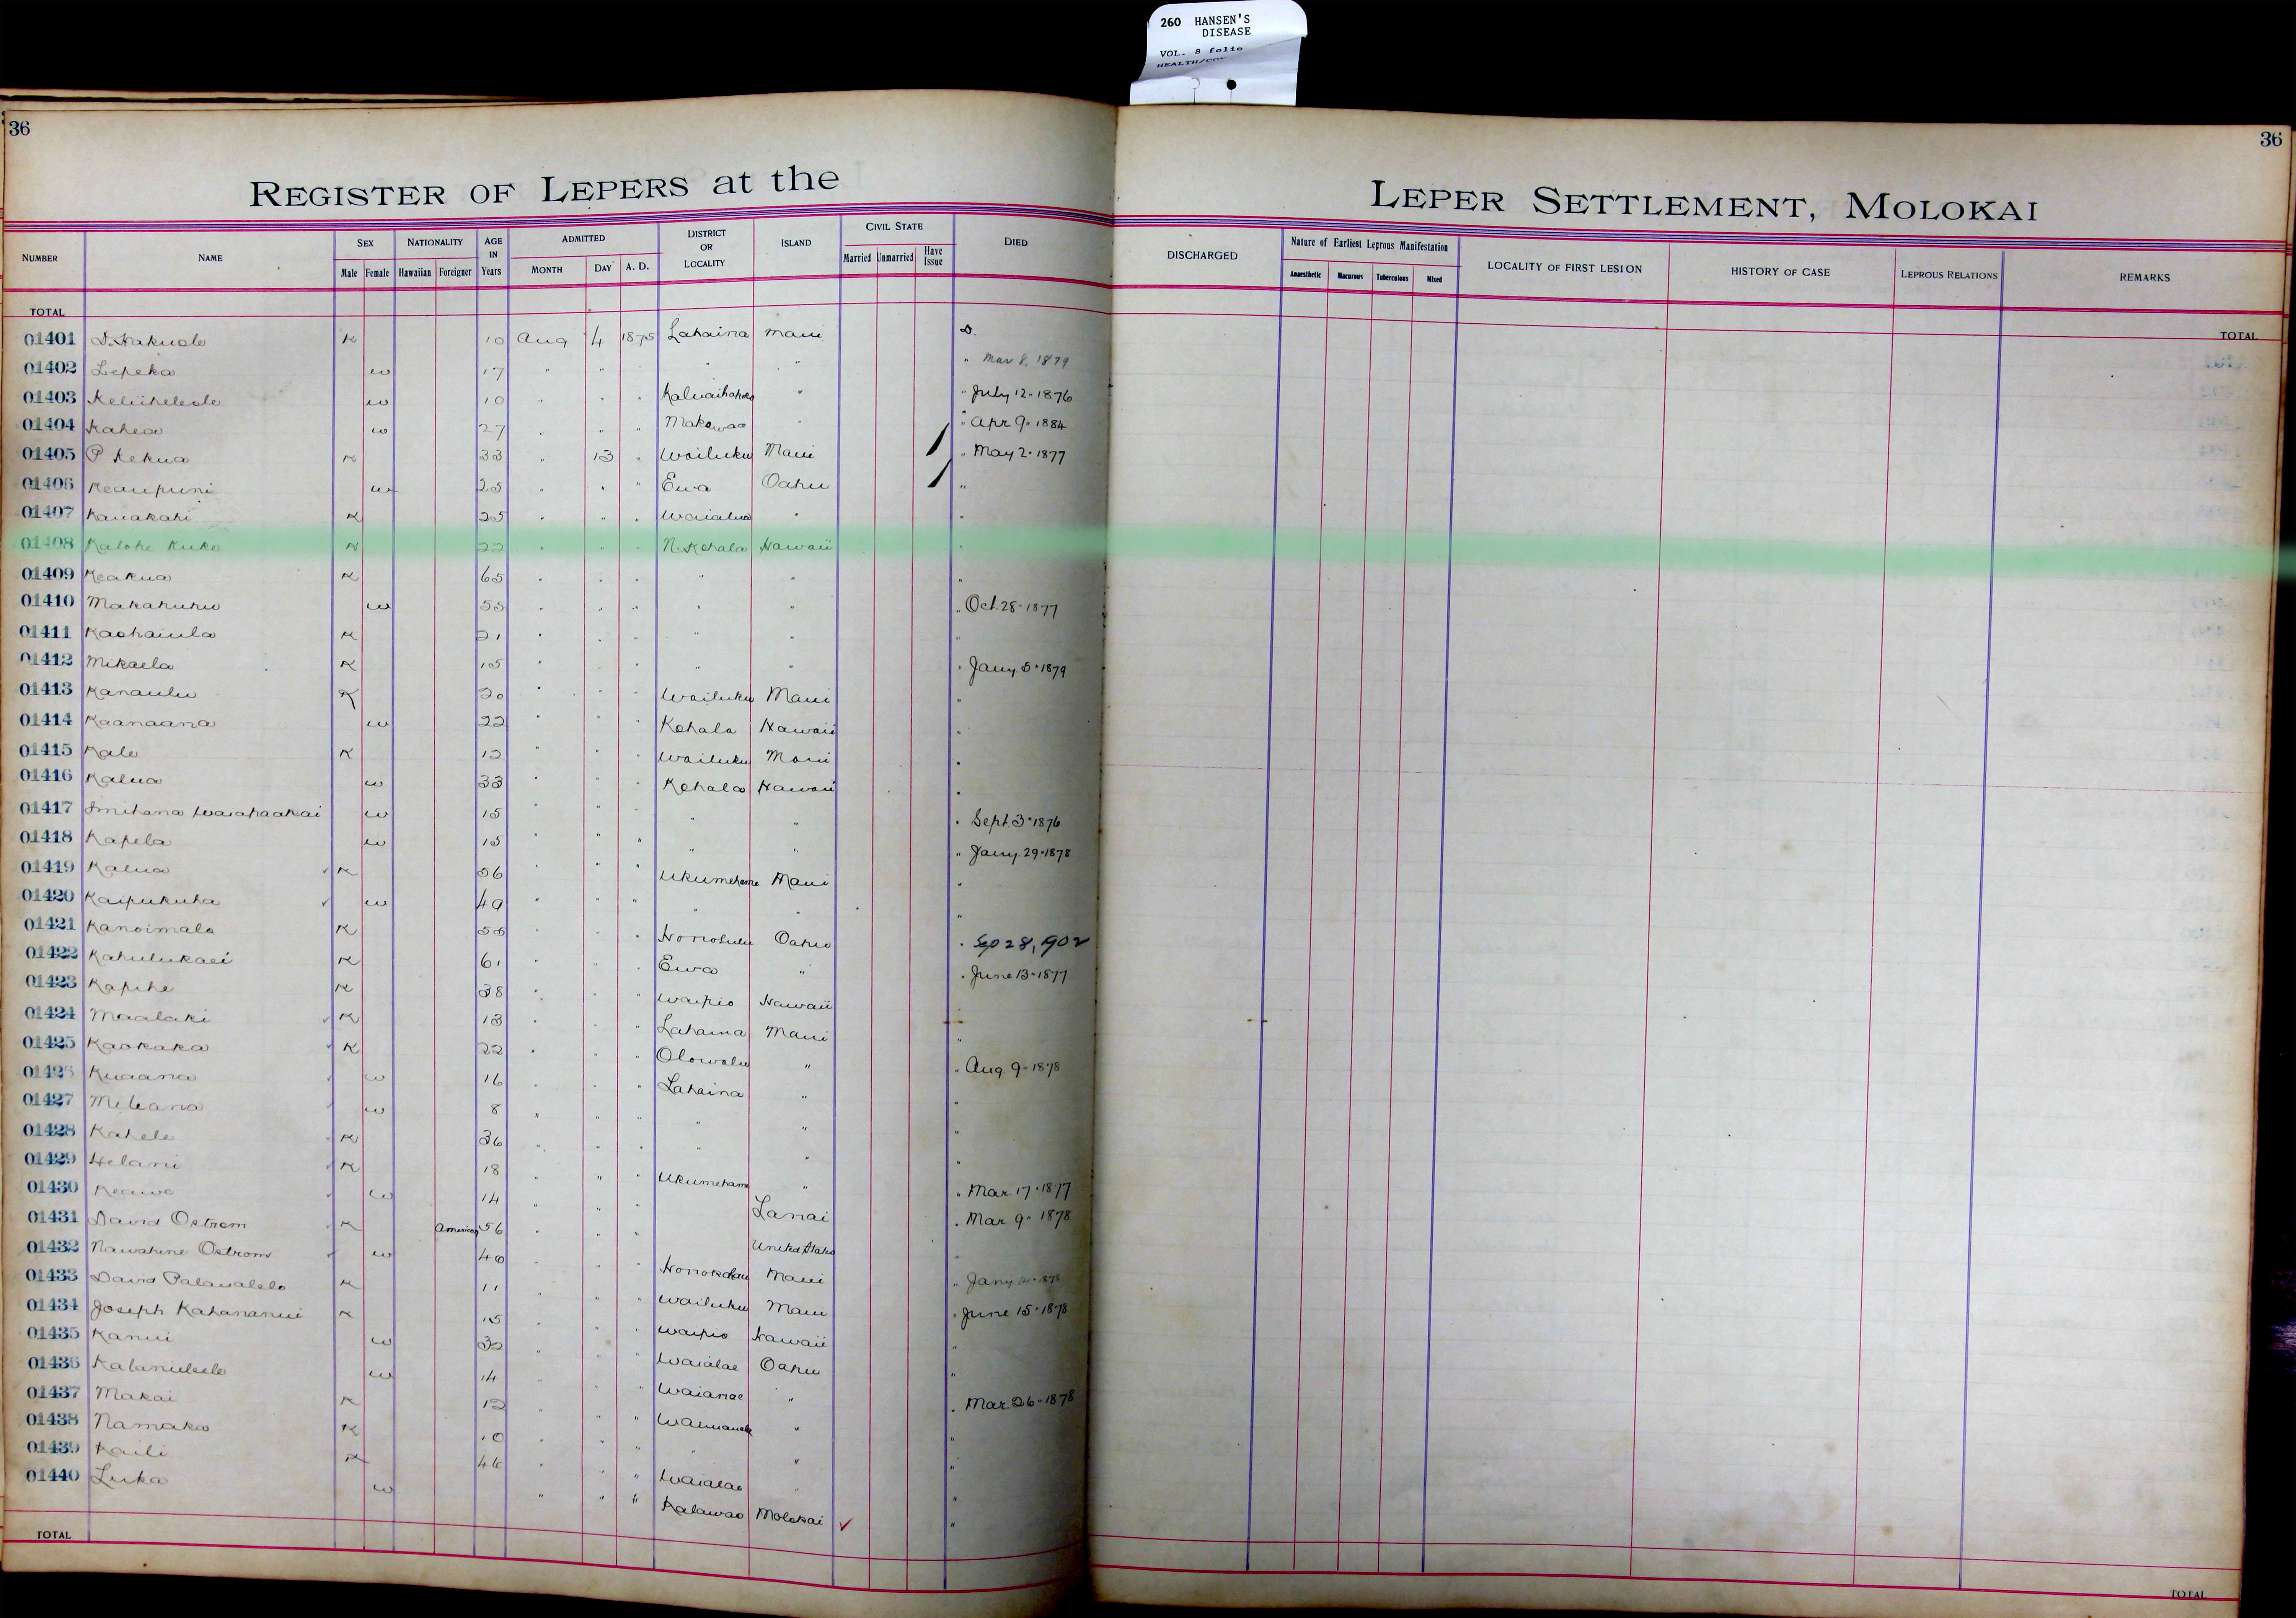 260 HANSEN'S
DISEASE
VOL. 8 folio
36
36
REGISTER OF LEPERS at the
LEPER SETTLEMENT, MOLOKAI
NUMBER NAME SEX NATIONALITY AGE IN Years ADMITTED DISTRICT OR LOCALITY ISLAND CIVIL STATE DIED
Male Female Hawaiian Foreigner MONTH DAY A. D. Married Unmarried Have Issue
DISCHARGED Nature of Earliest Leprous Manifestation LOCALITY OF FIRST LESION HISTORY OF CASE LEPROUS RELATIONS REMARKS
Anaesthetic Macurous Tuberculous Mixed
TOTAL
TOTAL
01401 D. Hakuole K 10 Aug 4 1875 Lahaina Maui D.
01402 Lepeka w 17 " " " " " " Mar 8. 1879
01403 w 10 " " " " " July 12-1876
01404 Kahea w 27 " " " Makawao " " Apr 9-1884
01405 P Kekua K 33 " 13 " Wailuku Maui " May 2-1877
01406 Keaupuni w 25 " " " Ewa Oahu "
01407 Kauakahi K 25 " " " Waialua " "
01408 Kalohe Kuke K 22 " " " N. Kohala Hawaii "
01409 Keakua K 65 " " " " " "
01410 Makahuhu w 55 " " " " " " Oct. 28-1877
01411 Kaohaiula K 21 " " " " " "
01412 Mikaela K 15 " " " " " " Jany 5-1879
01413 Kanaulu K 20 " " " Wailuku Maui "
01414 Kaanaana w 22 " " " Kohala Hawaii "
01415 Kale K 12 " " " Wailuku Maui "
01416 Kalua w 33 " " " Kohala Hawaii "
01417 w 15 " " " " " " Sept. 3-1876
01418 Kapela w 15 " " " " " " Jany. 29-1878
01419 Kalua K 56 " " " Ukumehame Maui "
01420 Kaipukuha w 49 " " " " " "
01421 Kanoimalo K 55 " " " Honolulu Oahu " Sep 28, 1902
01422 Kahulukaei K 61 " " " Ewa " " June 13-1877
01423 Kapihe K 38 " " " Waipio Hawaii
01424 Maalaki K 13 " " " Lahaina Maui "
01425 Kaokaka K 22 " " " Olowalu " " Aug. 9-1878
01426 Kuaana w 16 " " " Lahaina " "
01427 Meleana w 8 " " " " " "
01428 Kahele K 36 " " " " " "
01429 Helani K 18 " " " Ukumehame " " Mar. 17-1877
01430 Keawe w 14 " " " Lanai " Mar. 9-1878
01431 David Ostrom K American 56 " " " United States "
01432 Nawahine Ostrom w 40 " " " Honokohau Maui " Jany
01433 David Palaualelo K 11 " " " Wailuku Maui " June 15-1878
01434 Joseph Kahananui K 15 " " " Waipio Hawaii "
01435 Kanui w 32 " " " Waialae Oahu "
01436 w 14 " " " Waianae " " Mar. 26-1878
01437 Makai K 12 " " " "
01438 Namaka K 10 " " " " " "
01439 Kaili K 46 " " " Waialae " "
01440 Luka w " " " Kalawao Molokai "
TOTAL
TOTAL